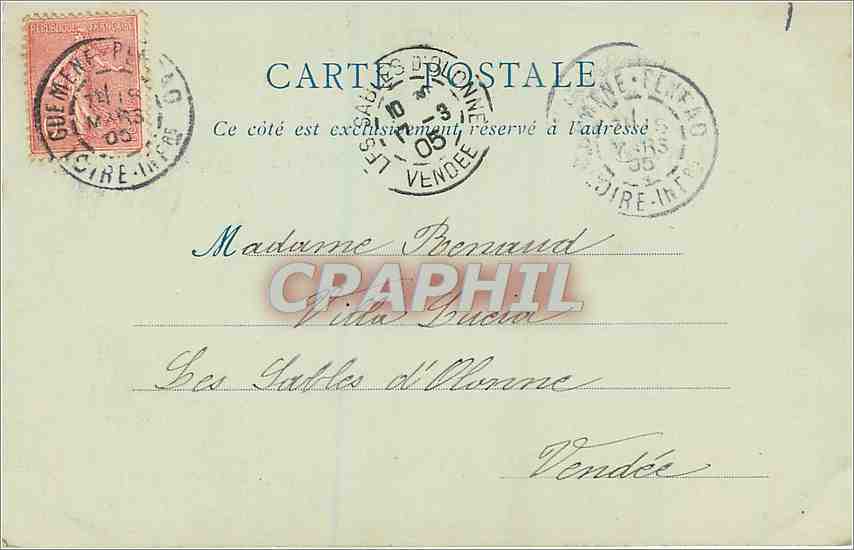 RÉPUBLIQUE FRANÇAISE
GUÉMENÉ-PENFAO
MARS
05
LOIRE-INFRE
LES SABLES D'OLONNE
10
17 -3
05
VENDÉE
GUÉMENÉ-PENFAO
MARS
05
LOIRE-INFRE
CARTE POSTALE
Ce côté est exclusivement réservé à l'adresse
Madame Renaud
CPARPHIL
Villa Lucia
Les Sables d'Olonne
Vendée